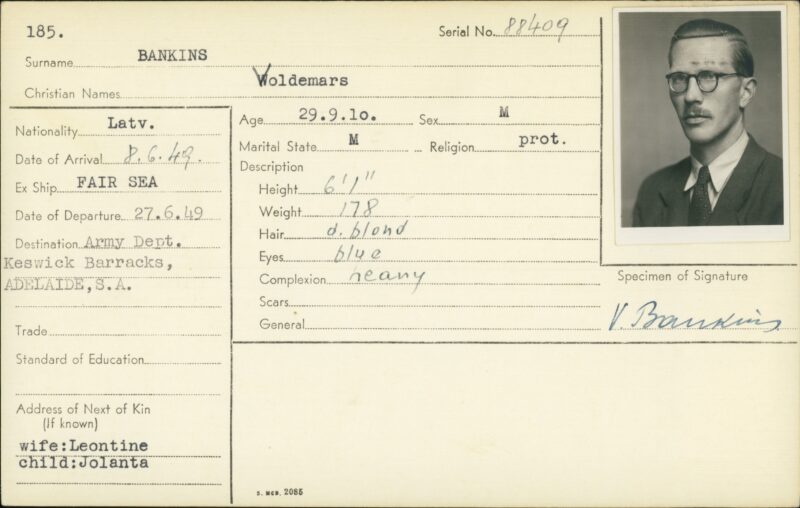 185.
Serial No. 88409
Surname BANKINS
Christian Names Voldemars
Nationality Latv.
Date of Arrival 8.6.49.
Ex Ship FAIR SEA
Date of Departure 27.6.49
Destination Army Dept.
Keswick Barracks,
ADELAIDE, S.A.
Trade
Standard of Education
Address of Next of Kin
(If known)
wife:Leontine
child:Jolanta
Age 29.9.10. Sex M
Marital State M Religion prot.
Description
Height 6'1"
Weight 178
Hair d. blond
Eyes blue
Complexion
Scars
General
Specimen of Signature
V. Bankins
2085